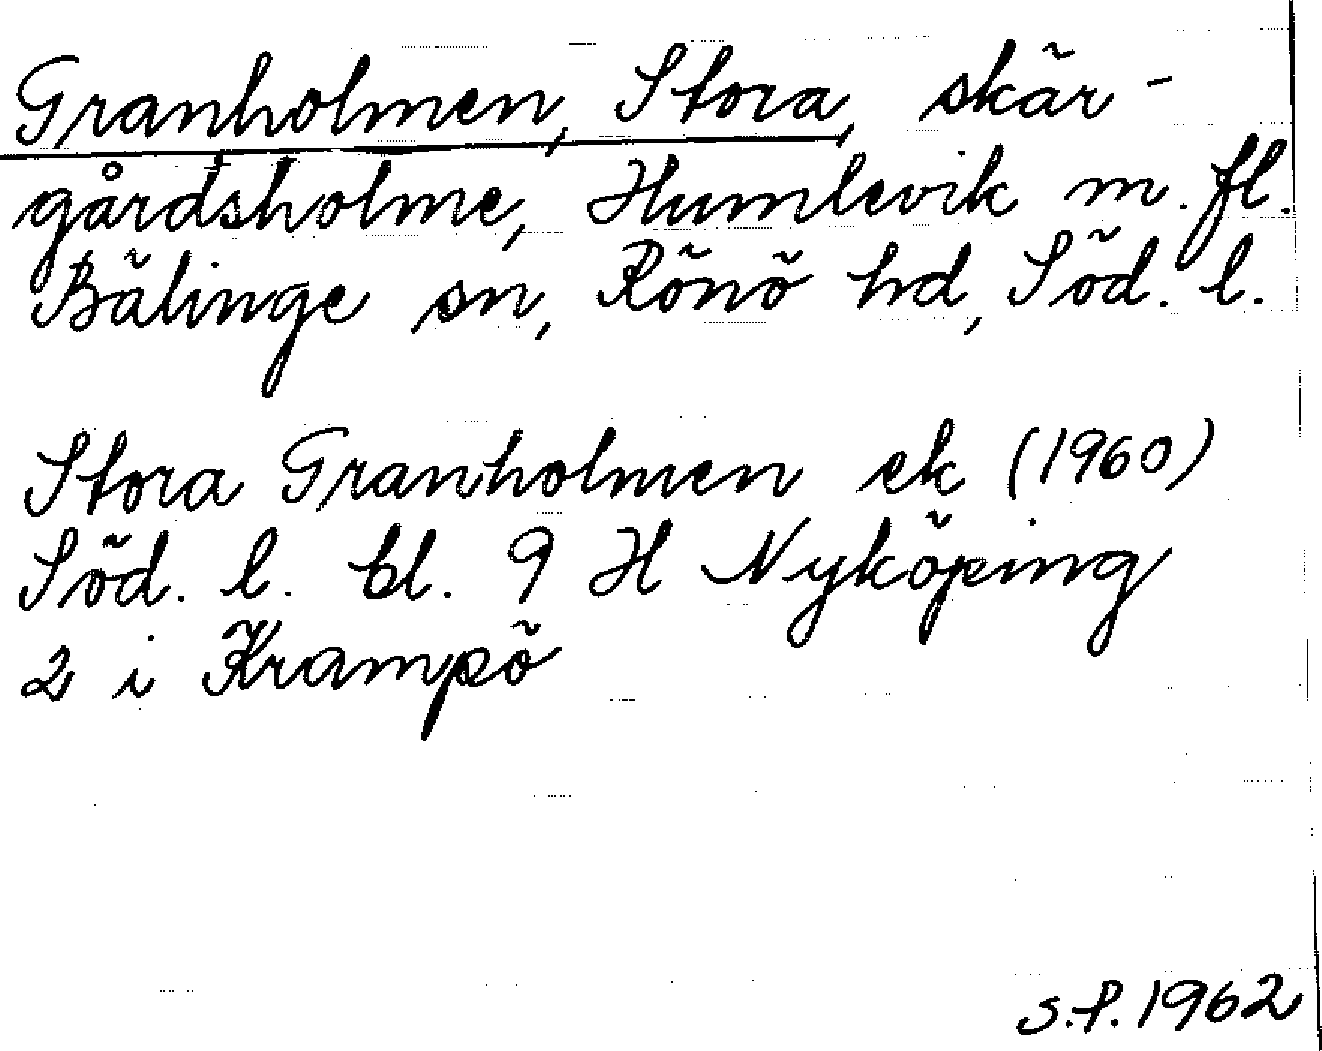 Granholmen, Stora, skär-
gårdsholme, Humlevik m. fl.
Bälinge sn, Rönö hd, Söd. l.
Stora Granholmen ek (1960)
Söd. l. bl. 9 H Nyköping
2 i Krampö
S.f. 1962